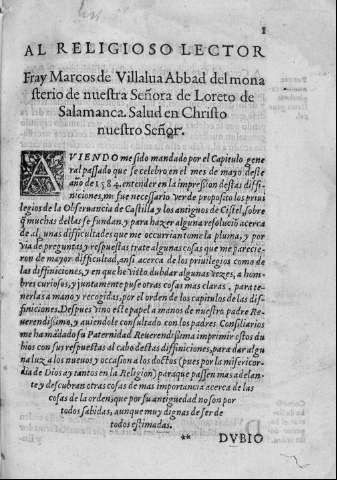 1
AL RELIGIOSO LECTOR
Fray Marcos de Villalua Abbad del mona
sterio de nuestra Señora de Loreto de
Salamanca. Salud en Christo
nuestro Señor.
AVIENDO me sido mandado por el Capitulo gene
ral passado que se celebro en el mes de mayo deste
año de 1584. entender en la impression destas diffi-
niciones, me fue necessario ver de proposito los priui
legios de la Obseruancia de Castilla y los antiguos de Cistel, sobre
q̃ muchas dellas se fundan, y para hazer alguna resolució acerca
de algunas difficultades que me occurrian tome la pluma, y por
via de preguntas y respuestas trate algunas cosas que me parecie-
ron de mayor difficultad, ansi acerca de los priuilegios como de
las diffiniciones, y en que he visto dubdar algunas vezes, a hom-
bres curiosos, y juntamente puse otras cosas mas claras, para te-
nerlas a mano y recogidas, por el orden de los capitulos de las dif-
finiciones. Despues vino este papel a manos de nuestro padre Re-
uerendissimo, y auiendole consultado con los padres Consiliarios
me ha mãdado su Paternidad Reuerendissima imprimir estos du
bios con sus respuestas al cabo destas diffiniciones, para dar algu
na luz a los nueuos y occasion a los doctos (pues por la misericor-
dia de Dios ay tantos en la Religion) para que passen mas adelan-
te y descubran otras cosas de mas importancia acerca de las
cosas de la orden que por su antiguedad no son por
todos sabidas, aunque muy dignas de ser de
todos estimadas.
** DVBIO